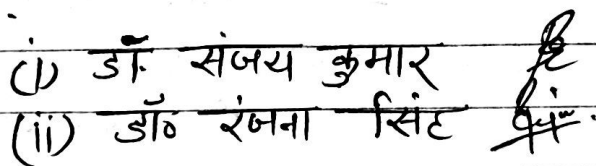 (i) डॉ. संजय कुमार
(ii) डॉ० रंजना सिंह